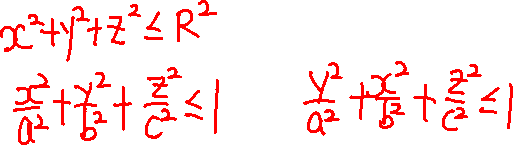 x²+y²+z²≤R²
x²/a²+y²/b²+z²/c²≤1 y²/a²+x²/b²+z²/c²≤1